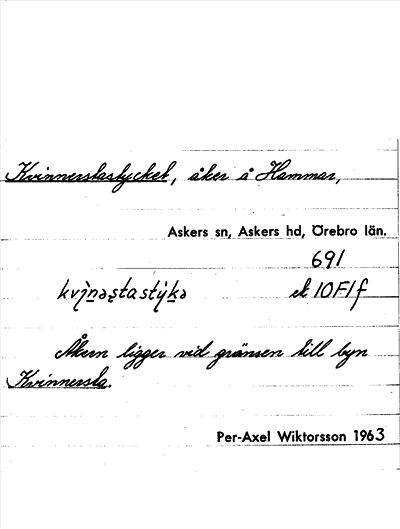 Kvinnerstastycket, åker å Hammar,
Askers sn, Askers hd, Örebro län.
691
ek 10F1f
Åkern ligger vid gränsen till byn
Kvinnersta.
Per-Axel Wiktorsson 1963